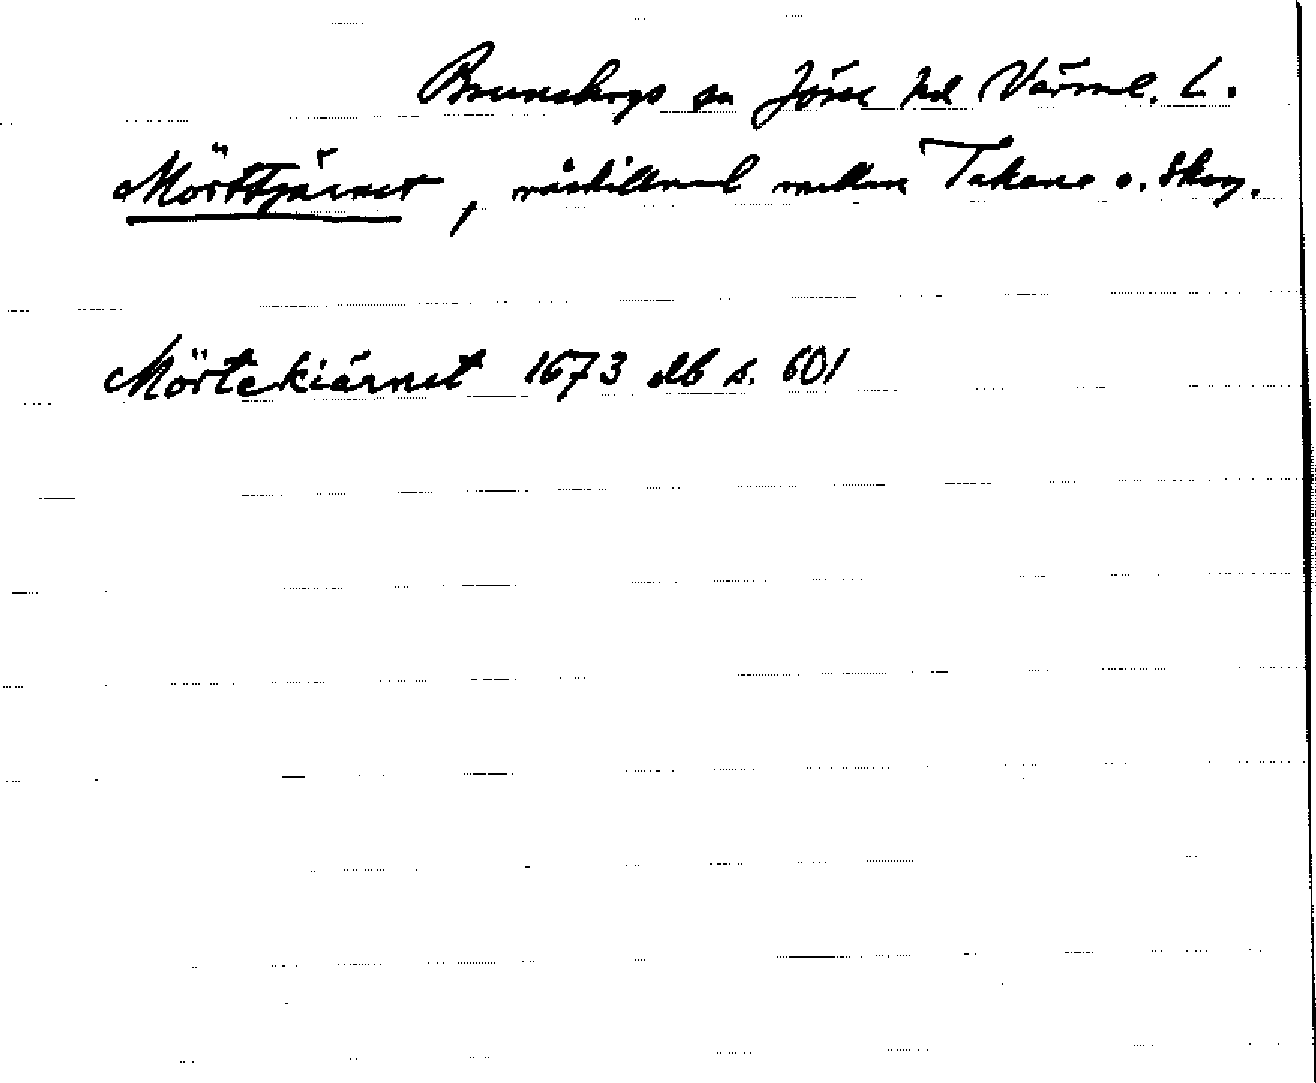 Brunskogs sn Jösse hd Värml. L.
Mörttjärnet, råskillnad mellan Takene o. Skog.
Mörtekiärnet 1673 db s. 601